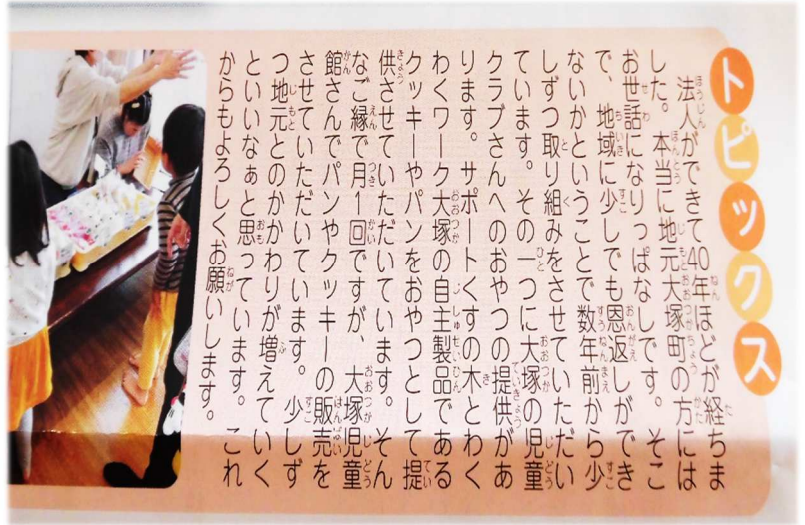 トピックス
法人ができて40年ほどが経ちま
した。本当に地元大塚町の方には
お世話になりっぱなしです。そこ
で、地域に少しでも恩返しができ
ないかということで数年前から少
しずつ取り組みをさせていただい
ています。その一つに大塚の児童
クラブさんへのおやつの提供があ
ります。サポートくすの木とわく
わくワーク大塚の自主製品である
クッキーやパンをおやつとして提
供させていただいています。そん
なご縁で月1回ですが、大塚児童
館さんでパンやクッキーの販売を
させていただいています。少しず
つ地元とのかかわりが増えていく
といいなぁと思っています。これ
からもよろしくお願いします。